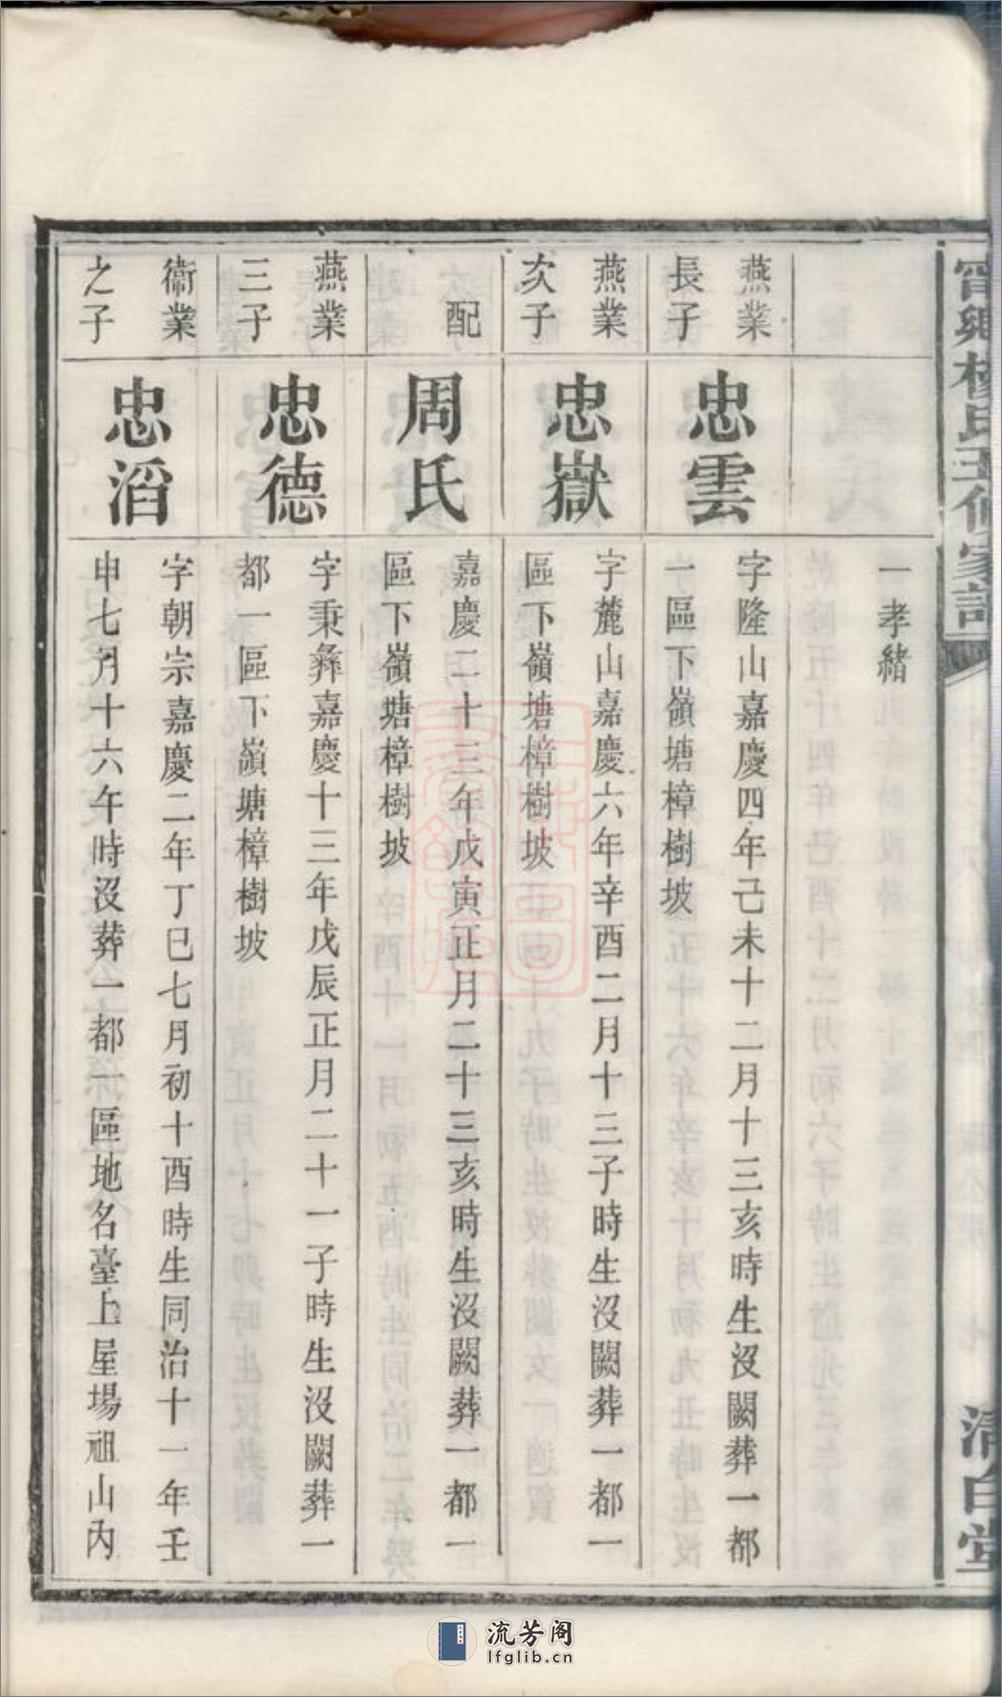 寧鄉楊氏五修家譜
清白堂
一孝緒
燕業
長子
忠雲
字隆山嘉慶四年己未十二月十三亥時生沒闕葬一都
一區下嶺塘樟樹坡
燕業
次子
忠嶽
字麓山嘉慶六年辛酉二月十三子時生沒闕葬一都一
區下嶺塘樟樹坡
配
周氏
嘉慶二十三年戊寅正月二十三亥時生沒闕葬一都一
區下嶺塘樟樹坡
燕業
三子
忠德
字秉彝嘉慶十三年戊辰正月二十一子時生沒闕葬一
都一區下嶺塘樟樹坡
衞業
之子
忠滔
字朝宗嘉慶二年丁巳七月初十酉時生同治十一年壬
申七月十六午時沒葬一都一區地名臺上屋場祖山內
流芳阁
lfglib.cn